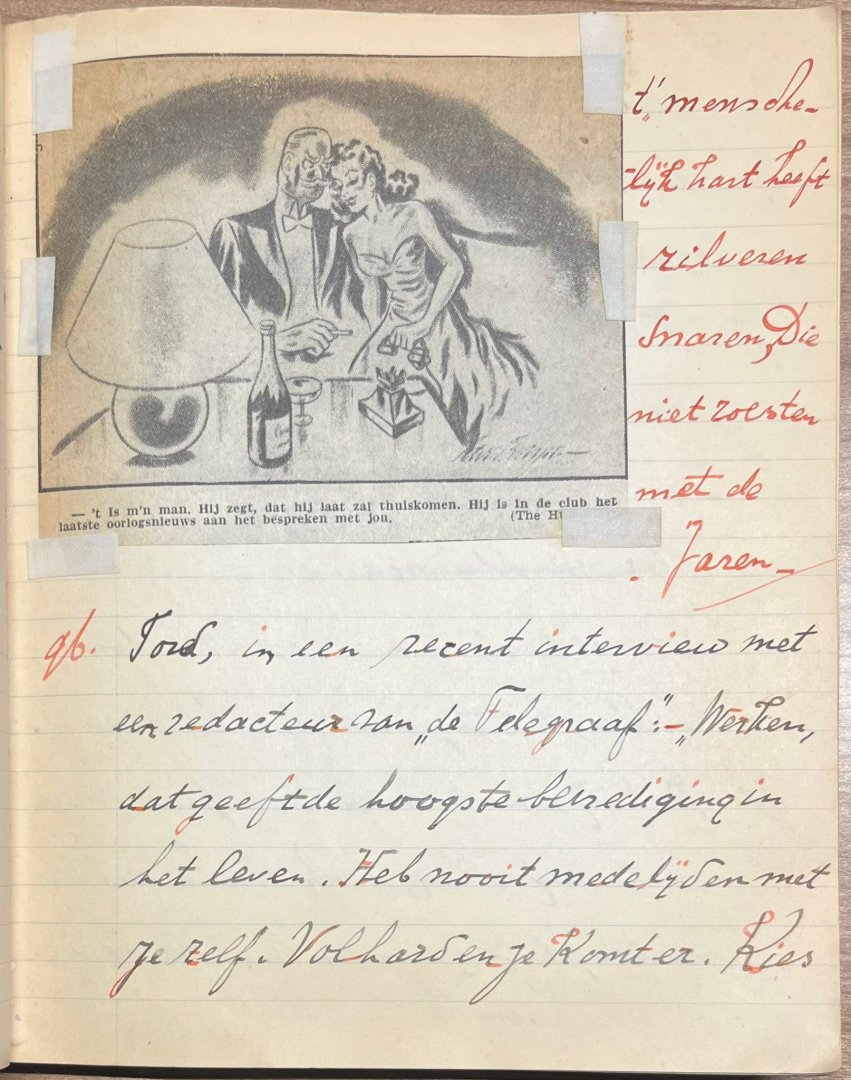 — 't Is m'n man. Hij zegt, dat hij laat zal thuiskomen. Hij is in de club het
laatste oorlogsnieuws aan het bespreken met jou.
(The Hu
't „mensche-
lijk hart heeft
zilveren
snaren, Die
niet roesten
met de
Jaren —
96. Ford, in een recent interview met
een redacteur van „de Telegraaf": — „Werken,
dat geeft de hoogste bevrediging in
het leven. Heb nooit medelijden met
je zelf. Volhard en je komt er. Kies